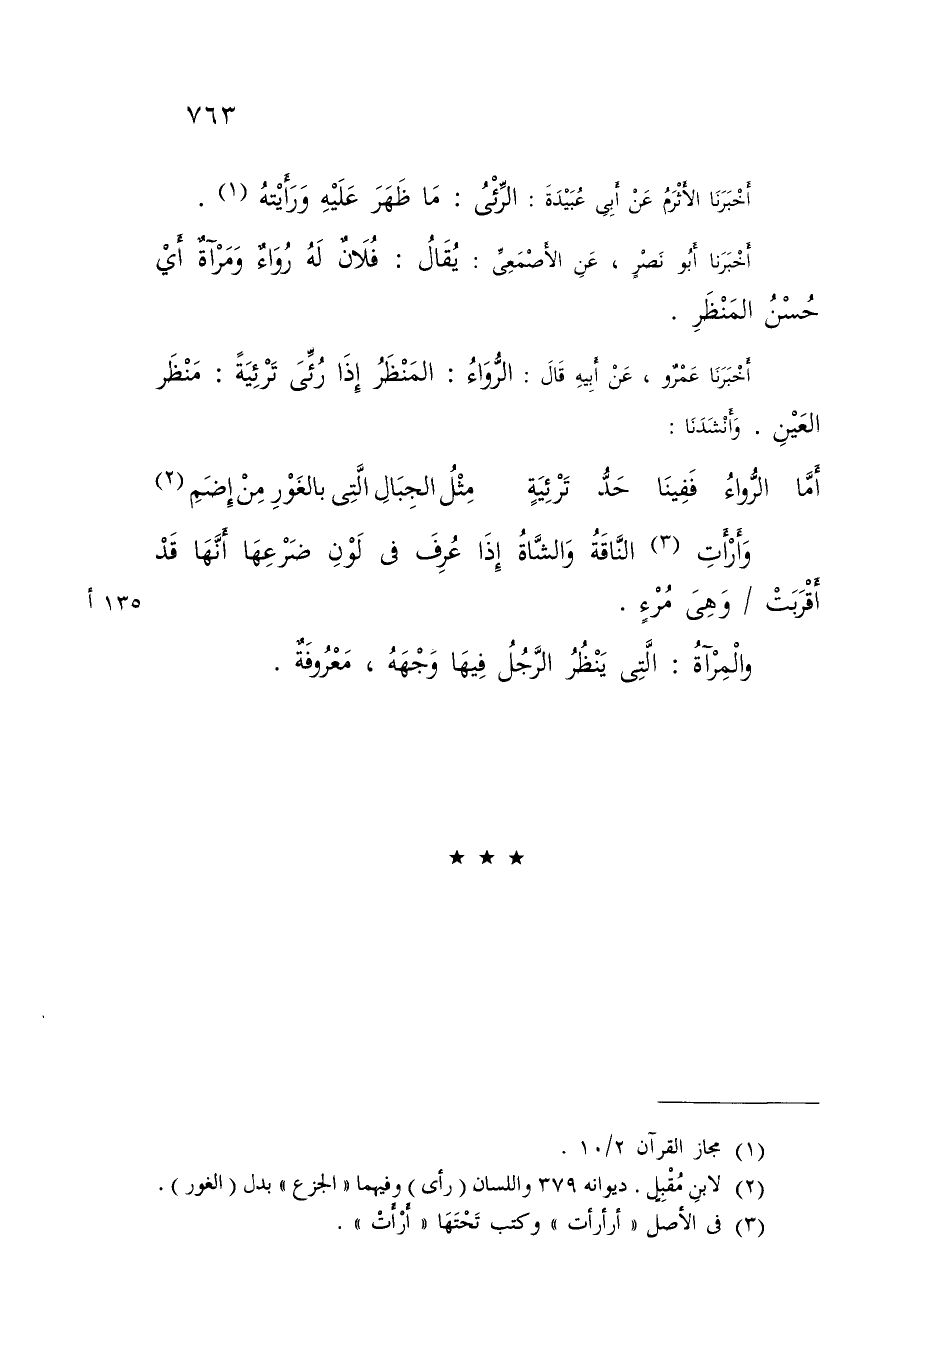 ٧٦٣
أَخْبَرَنَا الأَثْرَمُ عَنْ أَبِي عُبَيْدَةَ : الرِّئْىُ : مَا ظَهَرَ عَلَيْهِ وَرَأَيْتهُ (١) .
أَخْبَرَنا أَبُو نَصْرٍ ، عَنِ الأَصْمَعِىِّ : يُقَالُ : فُلَانٌ لَهُ رُوَاءٌ وَمَرْآةٌ أَيْ
حُسْنُ المَنْظَرِ .
أَخْبَرَنَا عَمْرٌو ، عَنْ أَبِيهِ قَالَ : الرُّوَاءُ : المَنْظَرُ إِذَا رُئِّىَ تَرْئِيَةً : مَنْظَر
العَيْنِ . وَأَنْشَدَنَا :
أَمَّا الرُّواءُ فَفِينَا حَدُّ تَرْئِيَةٍ مِثْلُ الجِبَالِ الَّتِى بالغَوْرِ مِنْ إِضَمِ (٢)
وَأَرْأَتِ (٣) النَّاقَةُ وَالشَّاةُ إِذَا عُرِفَ فى لَوْنِ ضَرْعِهَا أَنَّهَا قَدْ
أَقْرَبَتْ / وَهِىَ مُرْءٍ . ١٣٥ أ
والْمِرْآةُ : الَّتِى يَنْظُرُ الرَّجُلُ فِيهَا وَجْهَهُ ، مَعْرُوفَةٌ .
★ ★ ★
(١) مجاز القرآن ١٠/٢ .
(٢) لابنِ مُقْبِلٍ . ديوانه ٣٧٩ واللسان ( رأى ) وفيهما « الجزع » بدل ( الغور ) .
(٣) فى الأصل « أرأرأت » وكتب تَحْتَهَا « أَرْأَتْ » .